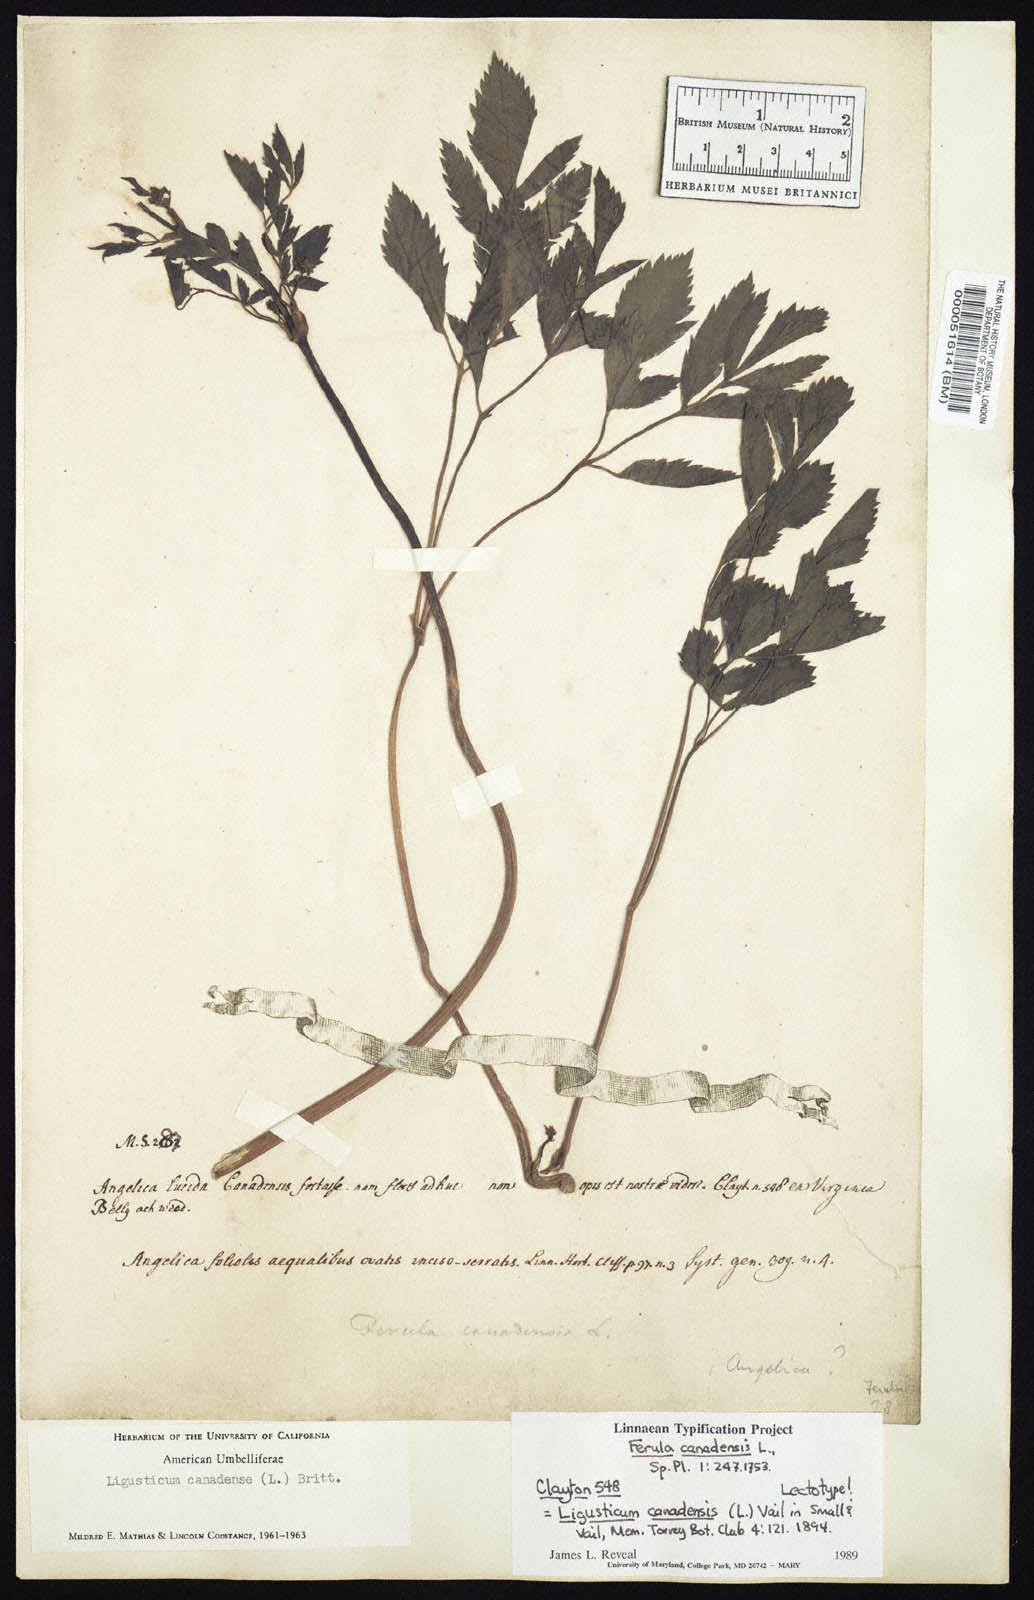 1 2
BRITISH MUSEUM (NATURAL HISTORY)
1 2 3 4 5
HERBARIUM MUSEI BRITANNICI
THE NATURAL HISTORY MUSEUM, LONDON
DEPARTMENT OF BOTANY
000051614 (BM)
M.S.
Angelica lucida Canadensis fortasse. nam flores adhuc non opus est nostræ videri. Clayt. n. 548 ex Virginia
Belly ach weed.
Angelica foliolis aequalibus ovatis inciso-serratis. Linn. Hort. Cliff. p. 97. n. 3 Syst. gen. 309. n. 4.
Ferula canadensis L.
Angelica?
Ferula
28
HERBARIUM OF THE UNIVERSITY OF CALIFORNIA
American Umbelliferae
Ligusticum canadense (L.) Britt.
MILDRED E. MATHIAS & LINCOLN CONSTANCE, 1961–1963
Linnaean Typification Project
Ferula canadensis L.,
Sp. Pl. 1: 247. 1753.
Clayton 548 Lectotype!
= Ligusticum canadensis (L.) Vail in Small &
Vail, Mem. Torrey Bot. Club 4: 121. 1894.
James L. Reveal 1989
University of Maryland, College Park, MD 20742 – MARY